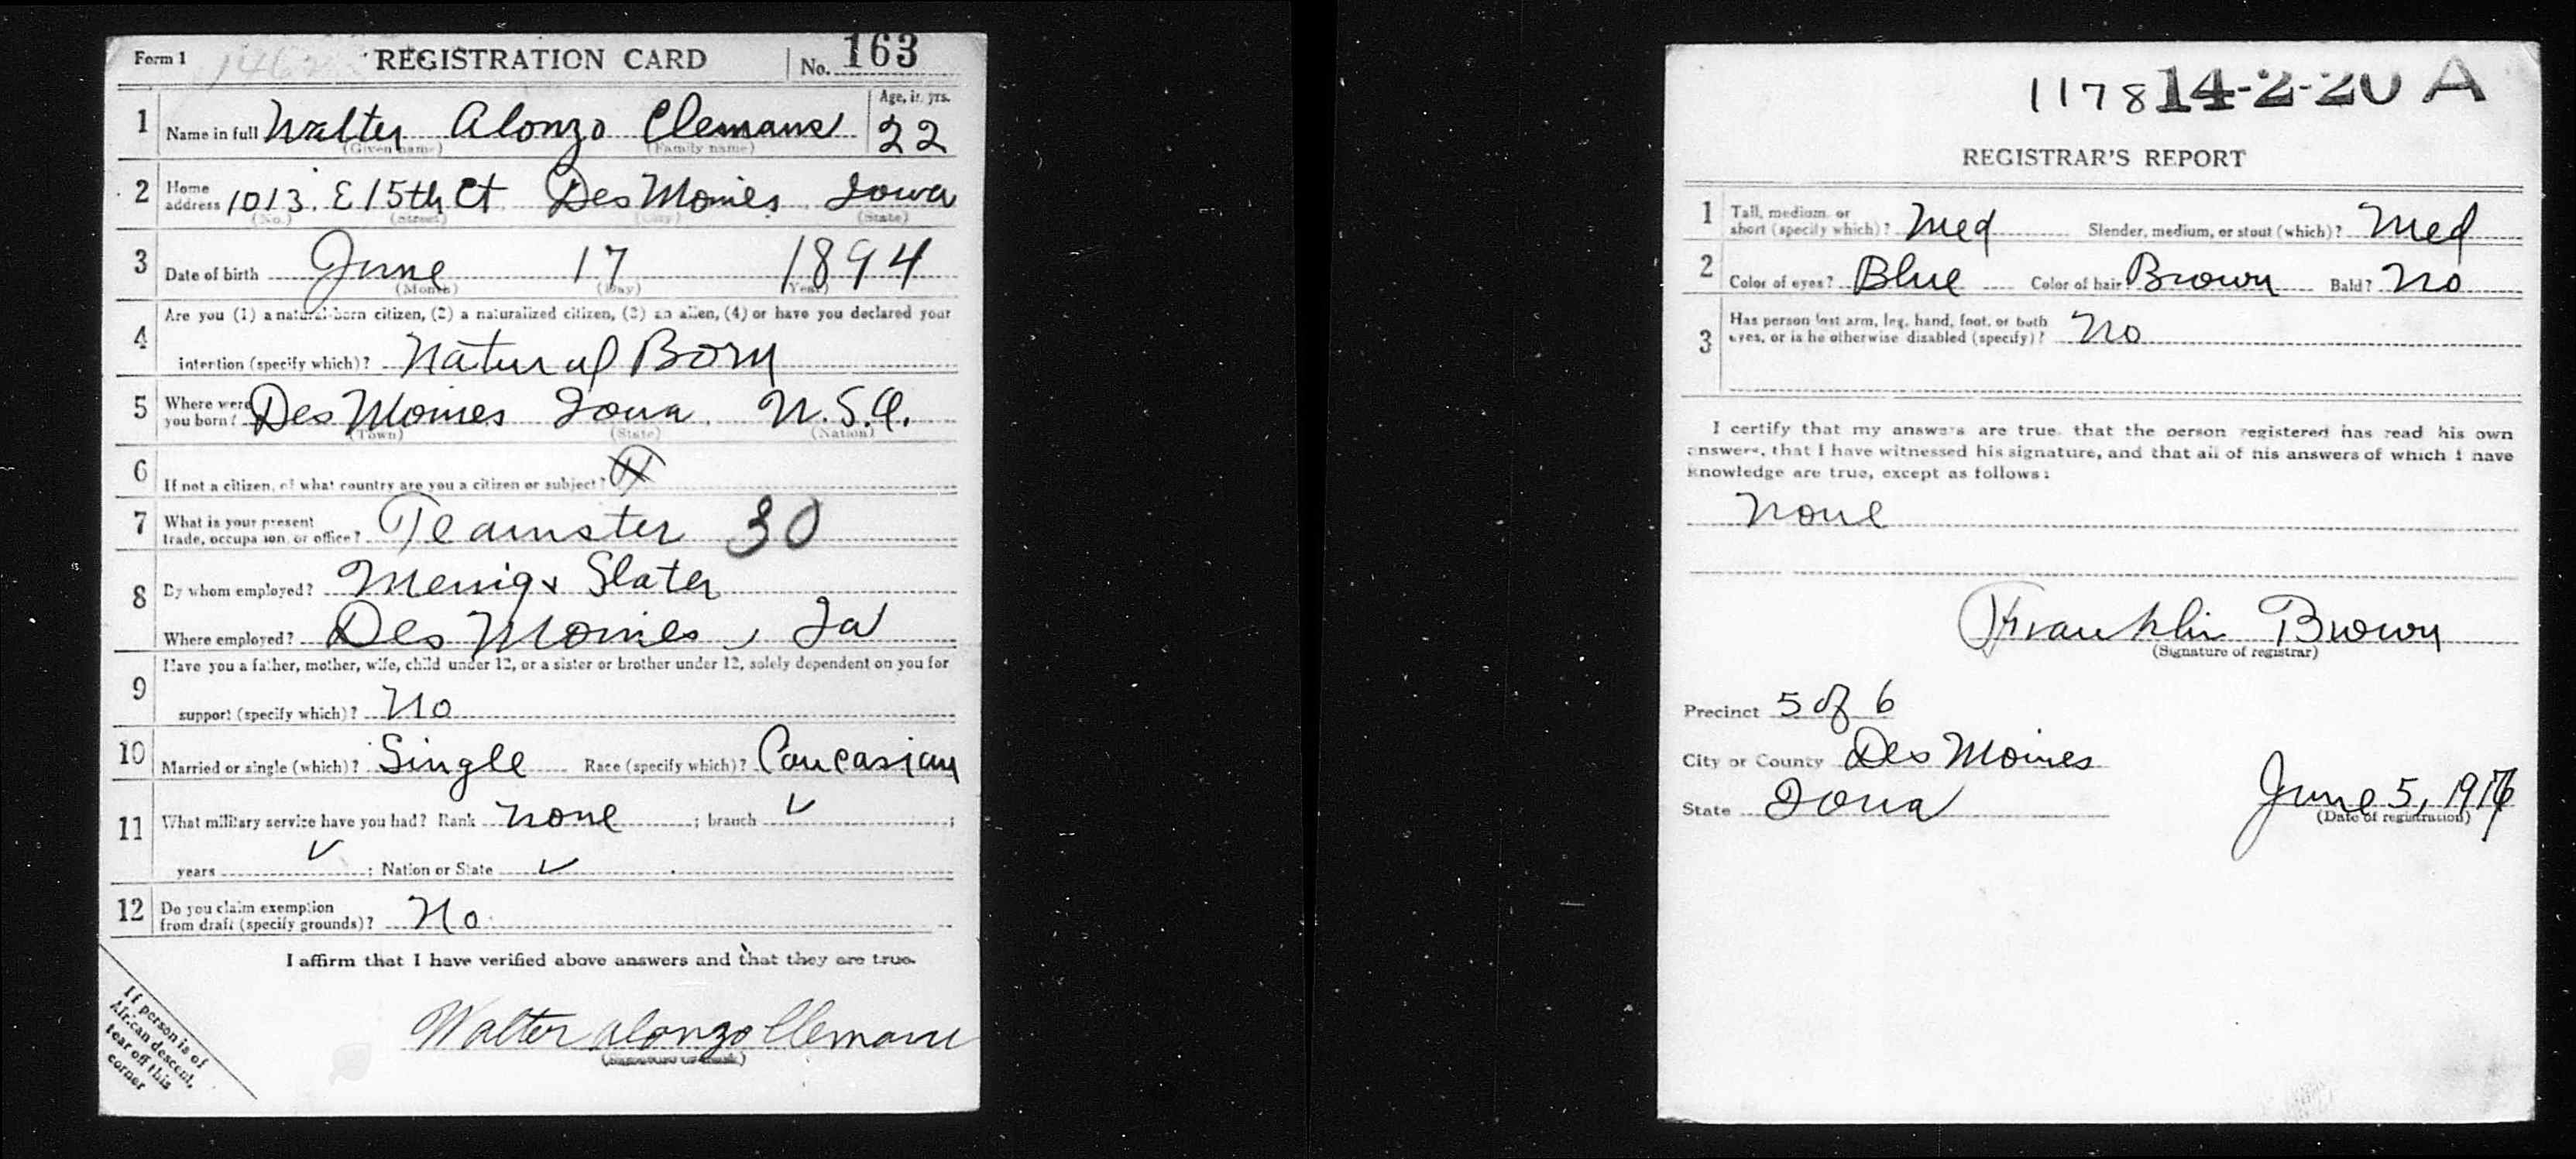 Form 1 REGISTRATION CARD No. 163
1 Name in full Walter Alonzo Clemans Age, in yrs. 22
(Given name) (Family name)
2 Home address 1013. E 15th Ct Des Moines Iowa
(No.) (Street) (City) (State)
3 Date of birth June 17 1894
(Month) (Day) (Year)
4 Are you (1) a natural-born citizen, (2) a naturalized citizen, (3) an alien, (4) or have you declared your
intention (specify which)? Natural Born
5 Where were you born? Des Moines Iowa. U.S.A.
(Town) (State) (Nation)
6 If not a citizen, of what country are you a citizen or subject?
7 What is your present trade, occupation, or office? Teamster 30
8 By whom employed? & Slater
Where employed? Des Moines, Ia
9 Have you a father, mother, wife, child under 12, or a sister or brother under 12, solely dependent on you for
support (specify which)? No
10 Married or single (which)? Single Race (specify which)? Caucasian
11 What military service have you had? Rank none ; branch ✓ ;
years ✓ ; Nation or State ✓
12 Do you claim exemption from draft (specify grounds)? No
I affirm that I have verified above answers and that they are true.
Walter Alonzo Clemans
If person is of
African descent,
tear off this
corner
1178 14-2-20 A
REGISTRAR'S REPORT
1 Tall, medium, or short (specify which)? Med Slender, medium, or stout (which)? Med
2 Color of eyes? Blue Color of hair Brown Bald? No
3 Has person lost arm, leg, hand, foot, or both
eyes, or is he otherwise disabled (specify)? No
I certify that my answers are true, that the person registered has read his own
answers, that I have witnessed his signature, and that all of his answers of which I have
knowledge are true, except as follows:
None
Franklin Brown
(Signature of registrar)
Precinct 5 of 6
City or County Des Moines
State Iowa June 5, 1917
(Date of registration)